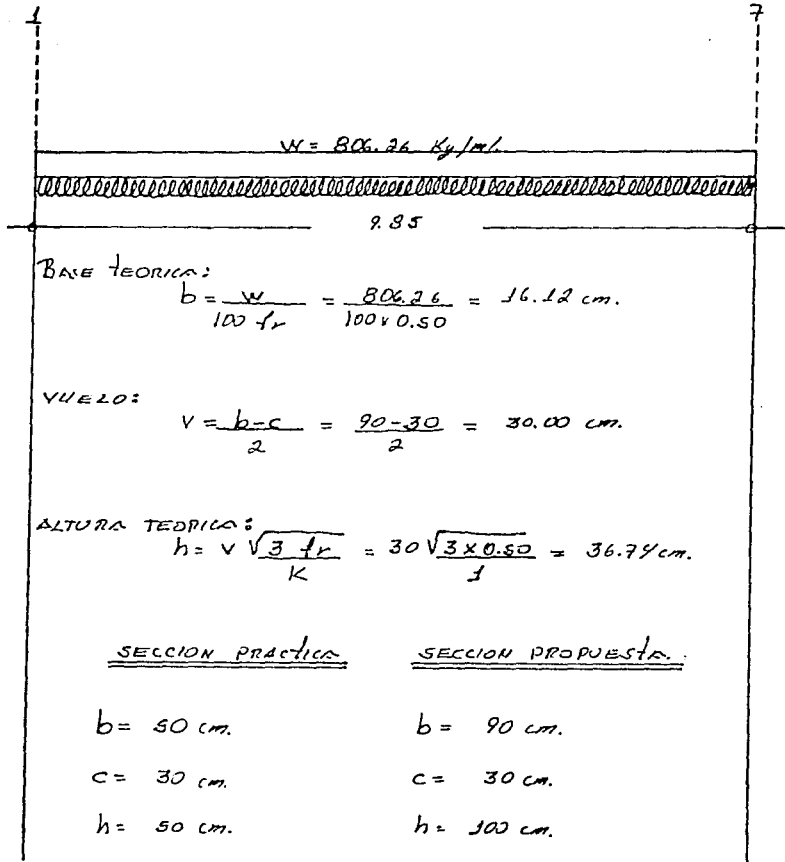 1 7
W = 806.26 Kg/ml.
9.85
BASE TEORICA:
b = w / 100 fr = 806.26 / 100 x 0.50 = 16.12 cm.
VUELO:
V = b-c / 2 = 90-30 / 2 = 30.00 cm.
ALTURA TEORICA:
h = v √3 fr / K = 30 √3 x 0.50 / 1 = 36.74 cm.
SECCION PRACTICA SECCION PROPUESTA.
b = 50 cm. b = 90 cm.
c = 30 cm. c = 30 cm.
h = 50 cm. h = 100 cm.